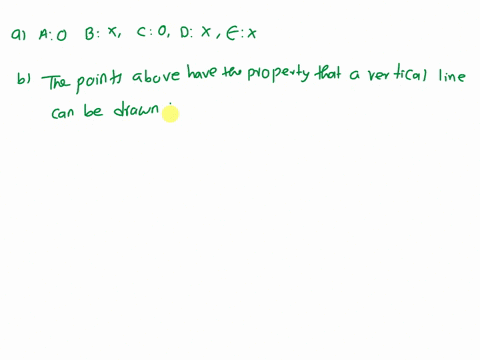 a) A:O B: x, C: O, D: x, E: x
b) The points above have the property that a vertical line
can be drawn